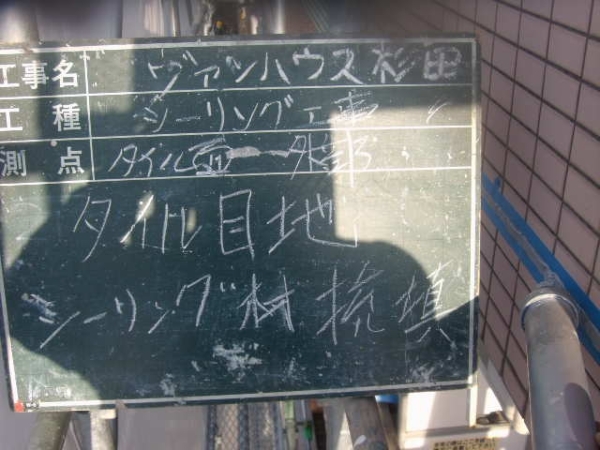 工事名 ヴァンハウス杉田
工種 シーリング工事
測点 タイル面 外部
タイル目地
シーリング材 充填